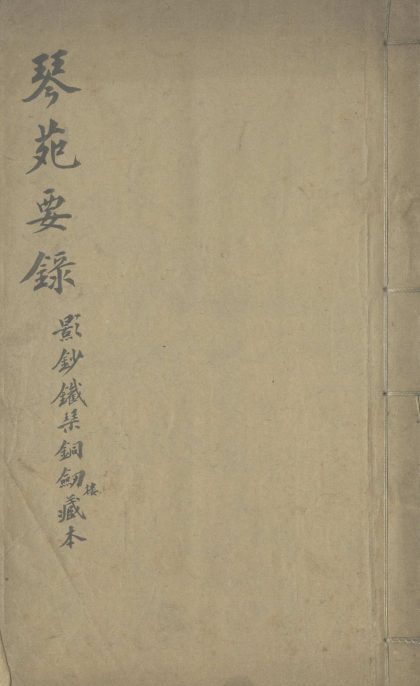 琴苑要錄
影鈔鐵琹銅劒樓藏本